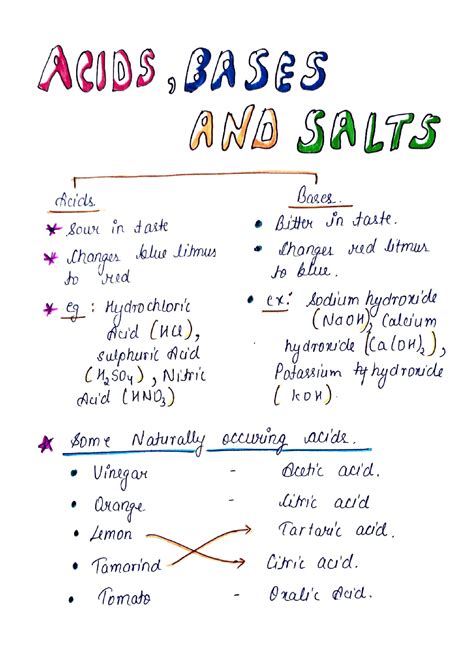 ACIDS, BASES
AND SALTS
Acids.
* Sour in taste
* Changes blue litmus
to red
* eg : Hydrochloric
Acid (HCl),
sulphuric Acid
(H2SO4), Nitric
Acid (HNO3)
Bases.
• Bitter in taste.
• Changes red litmus
to blue.
• ex: Sodium hydroxide
(NaOH), Calcium
hydroxide (Ca(OH)2),
Potassium hydroxide
(KOH).
* Some Naturally occuring acids.
• Vinegar - Acetic acid.
• Orange - Citric acid
• Lemon Tartaric acid.
• Tamarind Citric acid.
• Tomato - Oxalic Acid.